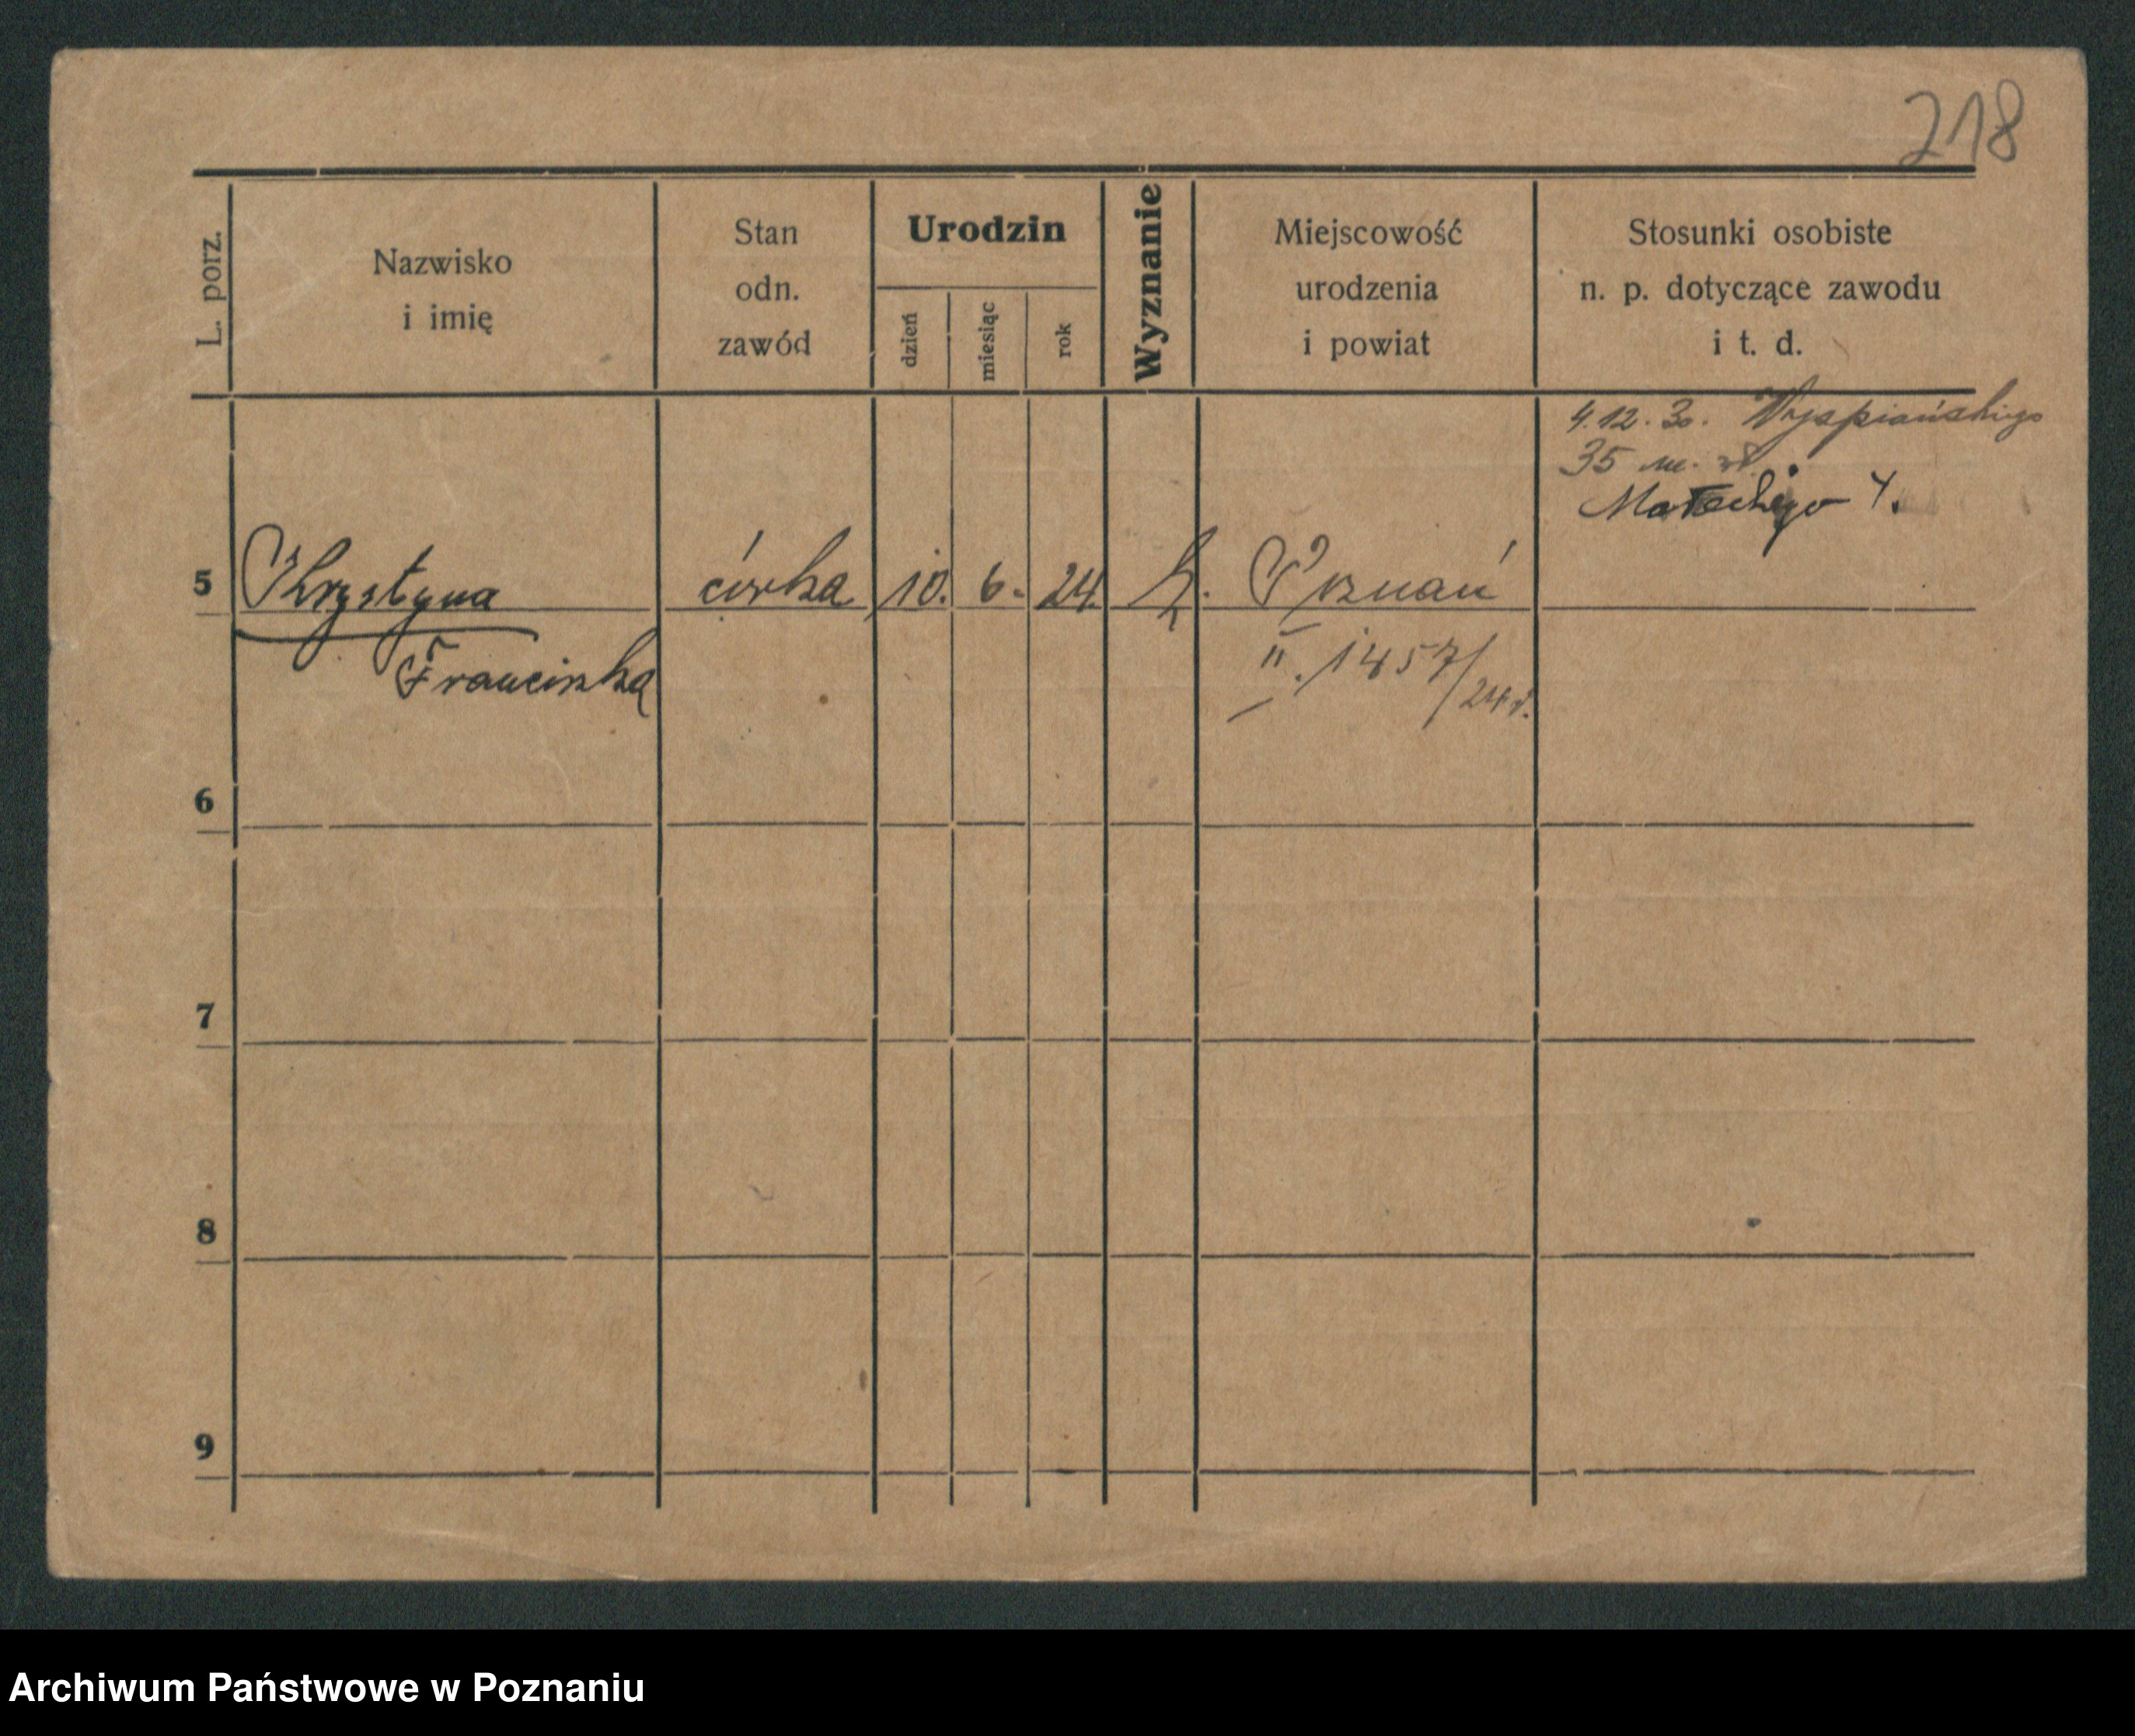 218
L. porz.
Nazwisko
i imię
Stan
odn.
zawód
Urodzin
dzień
miesiąc
rok
Wyznanie
Miejscowość
urodzenia
i powiat
Stosunki osobiste
n. p. dotyczące zawodu
i t. d.
4.12.30. Wyspiańskiego
35 m.
Małeckiego 4.
5 Krystyna córka 10. 6. 24. k. Poznań
Franciszka II. 1457/24
6
7
8
9
Archiwum Państwowe w Poznaniu